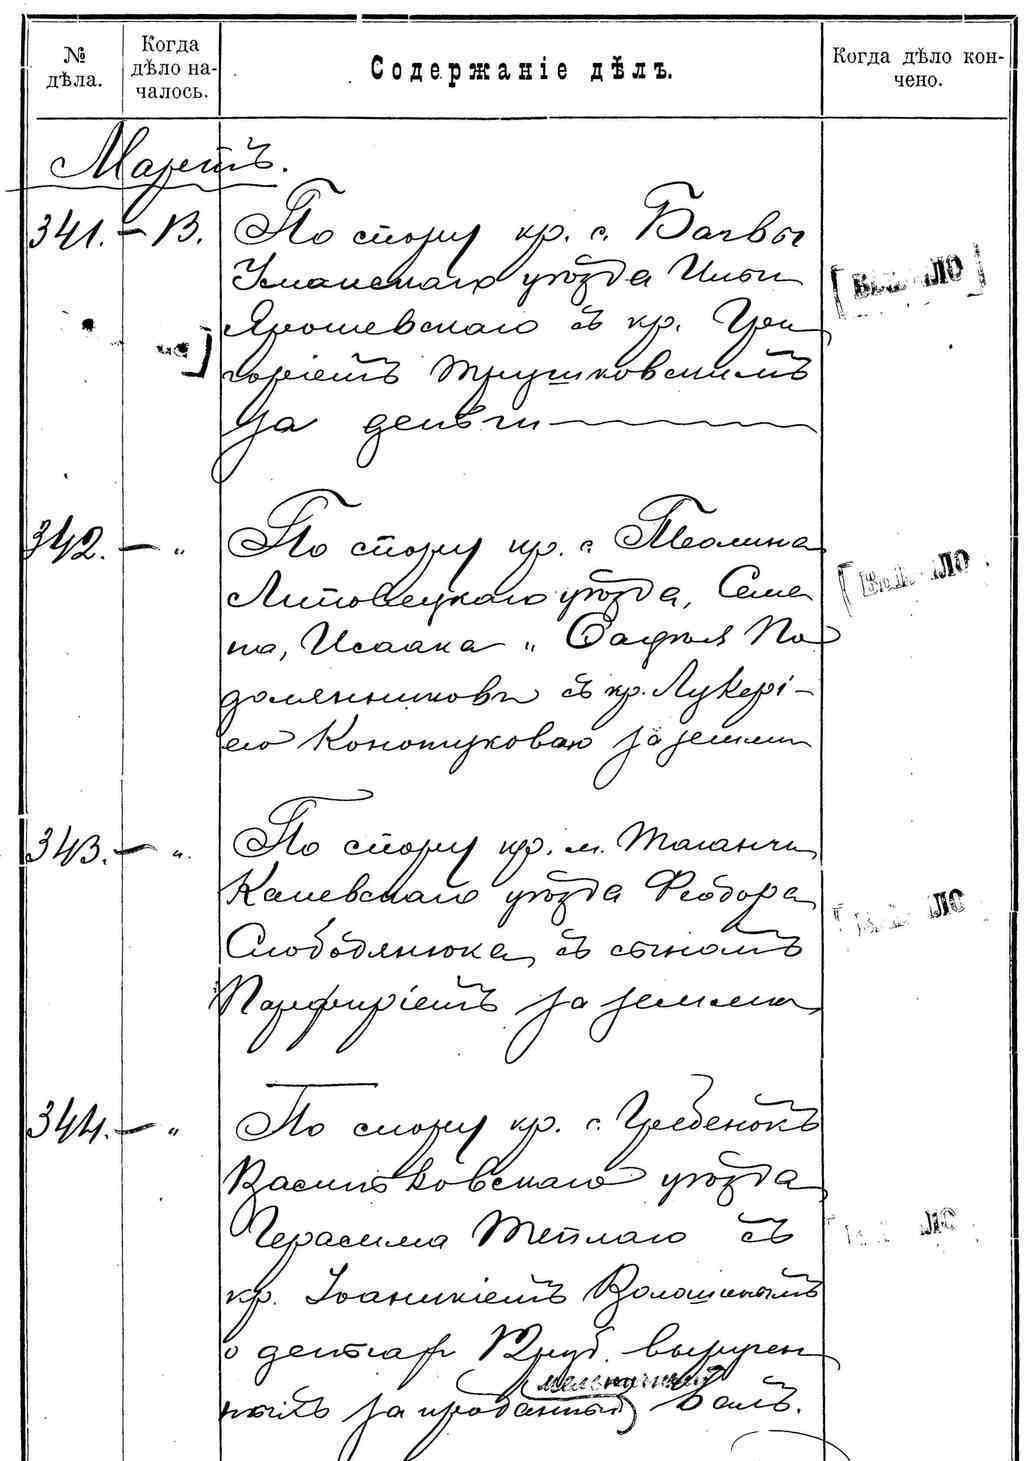 № дѣла.
Когда дѣло на-
чалось.
Содержаніе дѣлъ.
Когда дѣло кон-
чено.
Мартъ.
341. — 13. По спору кр. с. Багвы
Уманскаго уѣзда Ильи
Ярошевскаго съ кр. Гри
горіемъ Трушковскимъ
за деньги
ВЫБЫЛО
342. — „ По спору кр. с. Теолина
Липовецкаго уѣзда, Семе
на, Исаака и Сафрона По
долянниковъ съ кр. Лукері-
ею Конопуковою за землю
ВЫБЫЛО
343. — „ По спору кр. м. Таганчи
Каневскаго уѣзда Феодора
Слободянюка съ сыномъ
Парфиріемъ за землю
344. — „ По спору кр. с. Гребенокъ
Васильковскаго уѣзда
Герасима Теплаго съ
кр. Іоаникіемъ Волошинымъ
о деньгахъ 12 руб. выручен
мельничный
ныхъ за проданный валъ.